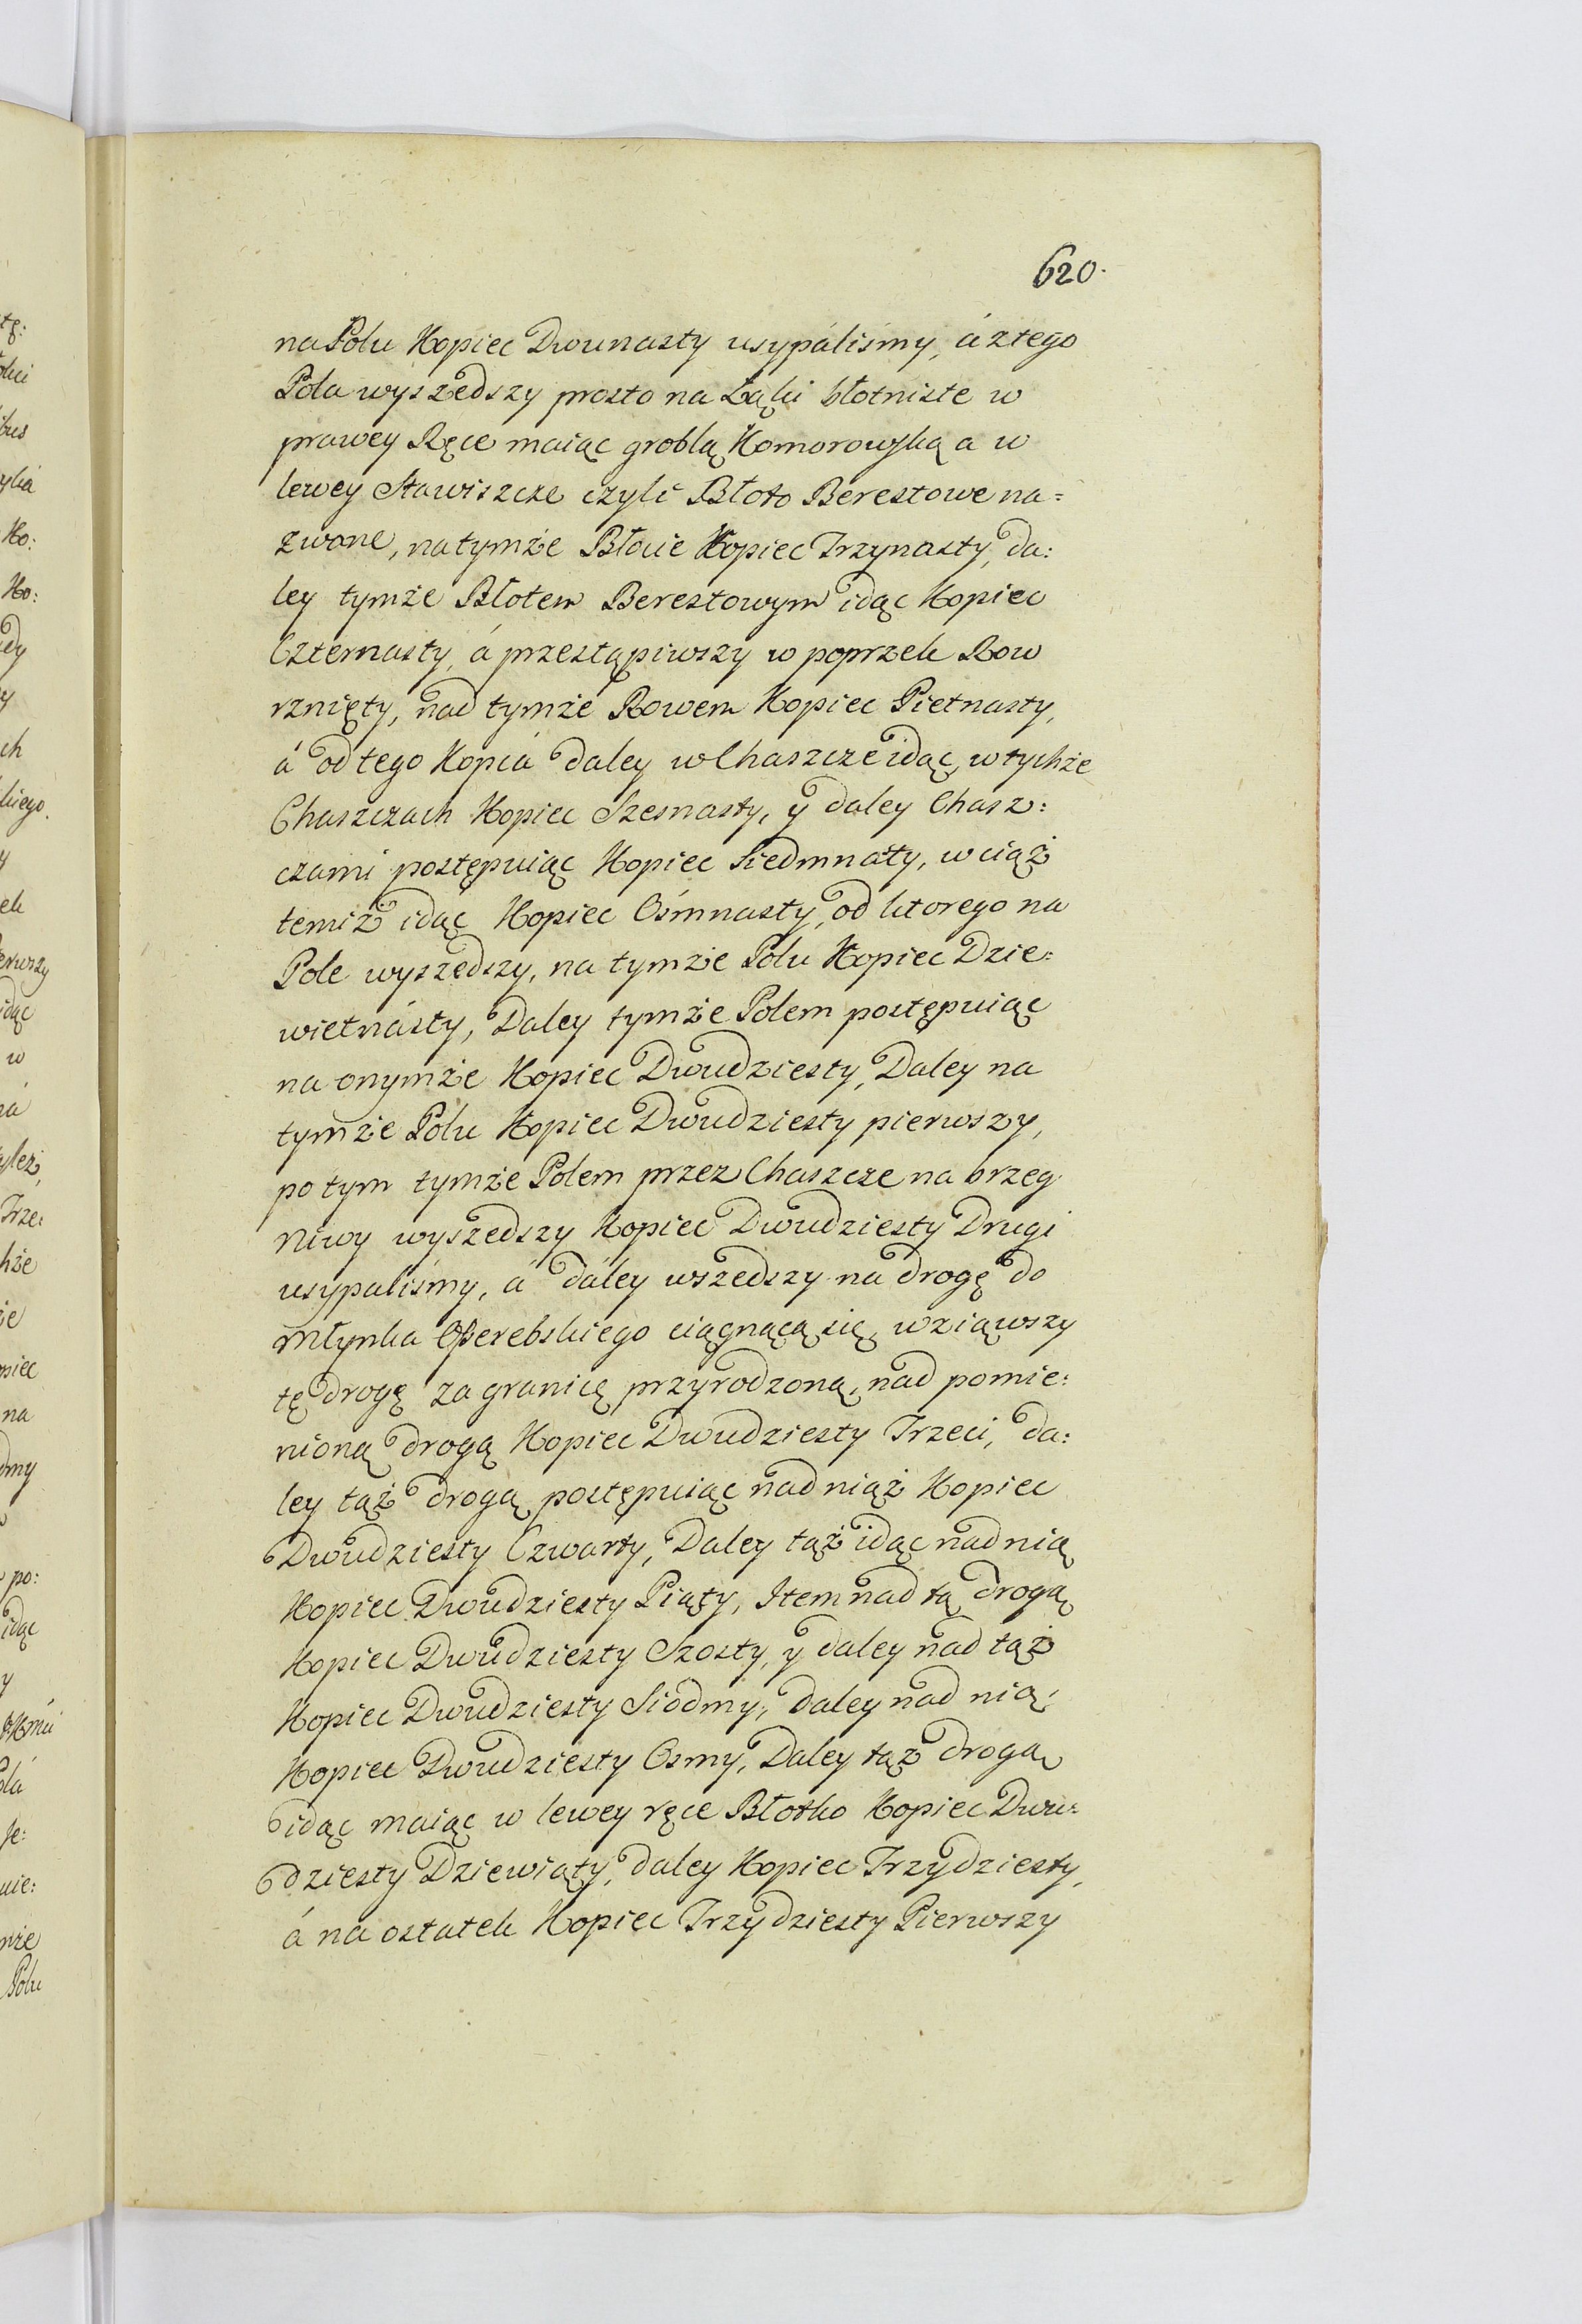 620.
na Polu Kopiec Dwunasty usypáliśmy, á z tego
Pola wyszedszy prosto na Łąki błotniste w
prawey Ręce maiąc groblą Komorowską a w
lewey Stawiszcze czyli Błoto Berestowe na=
zwane, na tymże Błocie Kopiec Trzynasty, da:
ley tymże Błotem Berestowym idąc Kopiec
Czternasty, á przestąpiwszy w poprzek Row
rznięty, nad tymże Rowem Kopiec Pietnasty,
á od tego Kopca daley w Chaszcze idąc, w tychże
Chaszczach Kopiec Szesnasty, y daley Chasz:
czami postępuiąc Kopiec Siedmnasty, wciąż
temiż idąc Kopiec Ośmnasty, od ktorego na
Pole wyszedszy, na tymże Polu Kopiec Dzie:
wietnásty, Daley tymże Polem postępuiąc
na onymże Kopiec Dwudziesty, Daley na
tymże Polu Kopiec Dwudziesty pierwszy,
po tym tymże Polem przez Chaszcze na brzeg
Niwy wyszedszy Kopiec Dwudziesty Drugi
usypaliśmy, á dáley wszedszy na drogę do
Młynka Operebskiego ciągnącą się, wziąwszy
tę drogę za granicę przyrodzoną, nad pomie:
nioną drogą Kopiec Dwudziesty Trzeci, da:
ley tąż drogą postępuiąc nad niąż Kopiec
Dwudziesty Czwarty, Daley tąż idąc nad nią
Kopiec Dwudziesty Piąty, Item nad tą drogą
Kopiec Dwudziesty Szosty, y daley nad tąż
Kopiec Dwudziesty Siodmy, daley nad nią
Kopiec Dwudziesty Osmy, Daley tąż drogą
idąc maiąc w lewey ręce Błotko Kopiec Dwu=
dziesty Dziewiąty, daley Kopiec Trzydziesty,
á na ostatek Kopiec Trzydziesty Pierwszy